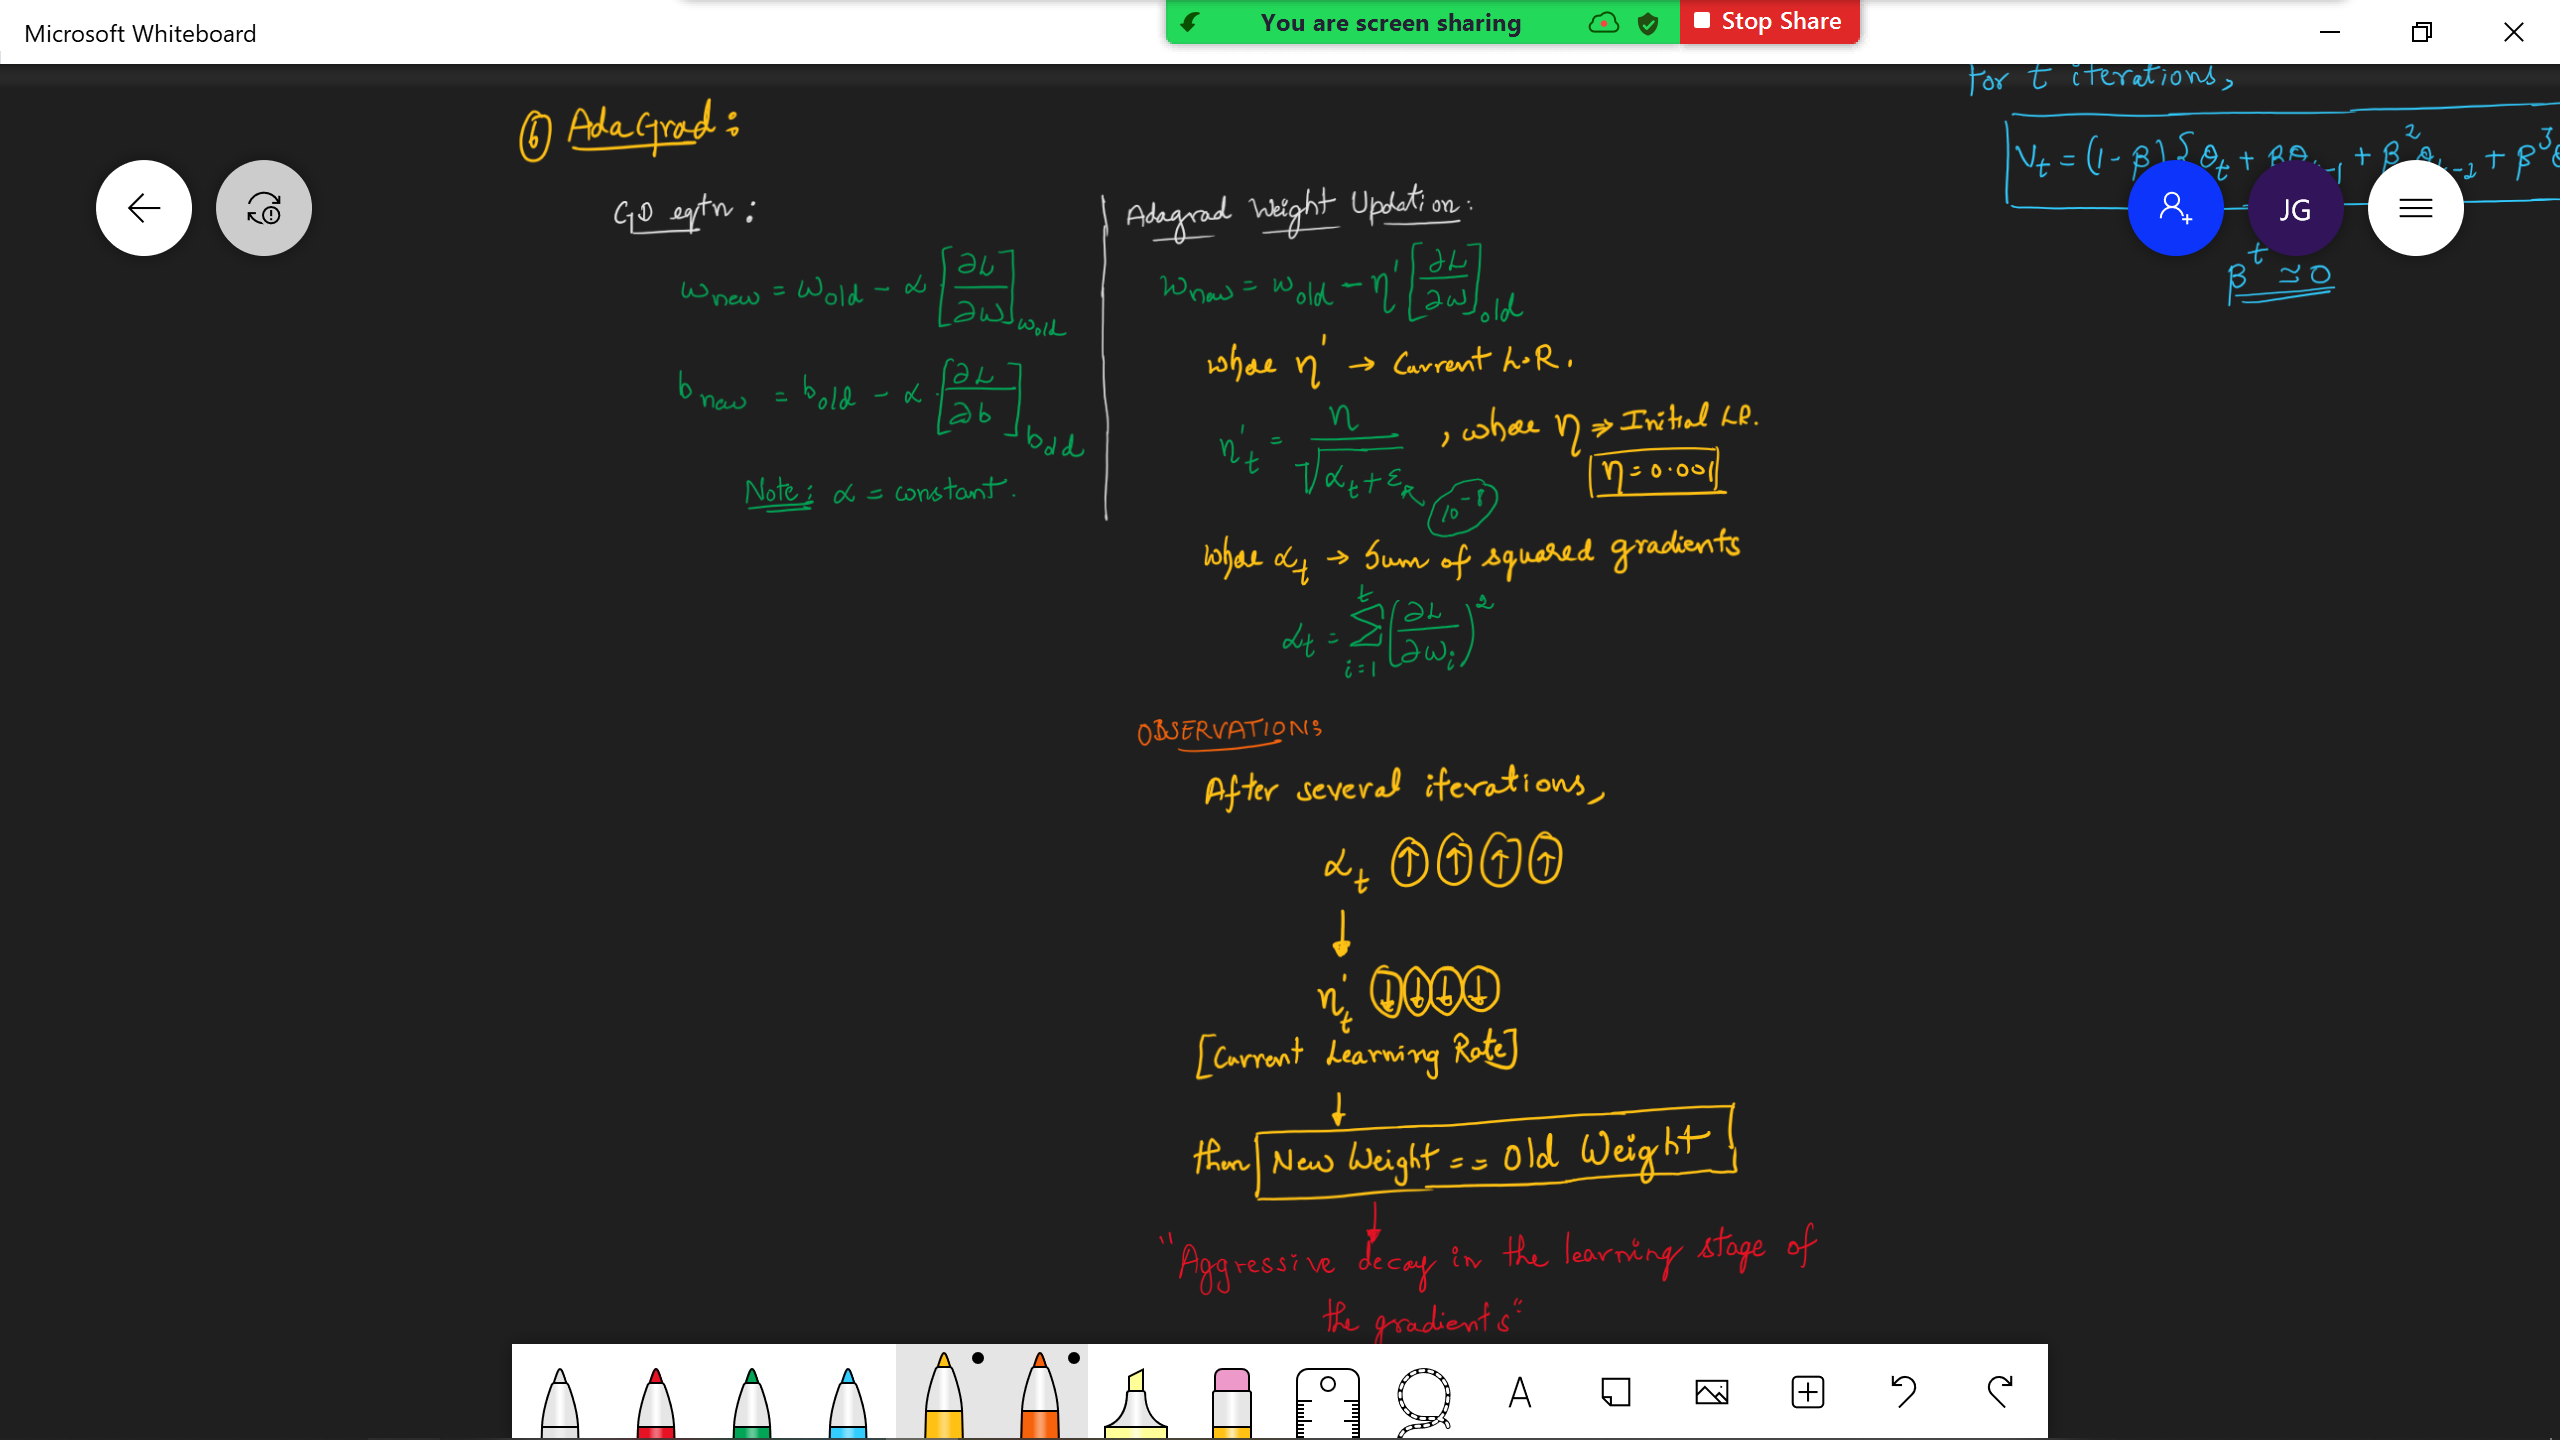 Microsoft Whiteboard
You are screen sharing
Stop Share
For t iterations,
V_t = (1-β) { θ_t + βθ_{t-1} + β²θ_{t-2} + β³
β^t ≃ 0
JG
⑥ AdaGrad:
GD eqtn:
w_new = w_old - α [∂L/∂w]_{w_old}
b_new = b_old - α [∂L/∂b]_{b_old}
Note: α = constant.
Adagrad Weight Updation:
w_new = w_old - η' [∂L/∂w]_old
where η' → Current L.R.
η'_t = η / √(α_t + ε) , where η ⇒ Initial LR.
10^-8
η = 0.001
where α_t → Sum of squared gradients
α_t = Σ_{i=1}^{t} (∂L/∂w_i)²
OBSERVATION:
After several iterations,
α_t ↑ ↑ ↑ ↑
↓
η'_t ↓ ↓ ↓ ↓
[Current Learning Rate]
↓
then New Weight == Old Weight
↓
"Aggressive decay in the learning stage of
the gradients"